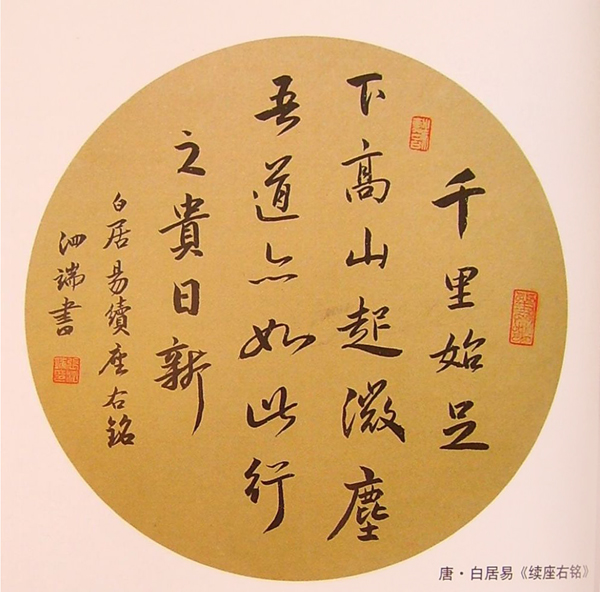 千里始足
下高山起微塵
吾道亦如此行
之貴日新
白居易續座右銘
泗端書
唐·白居易《续座右铭》